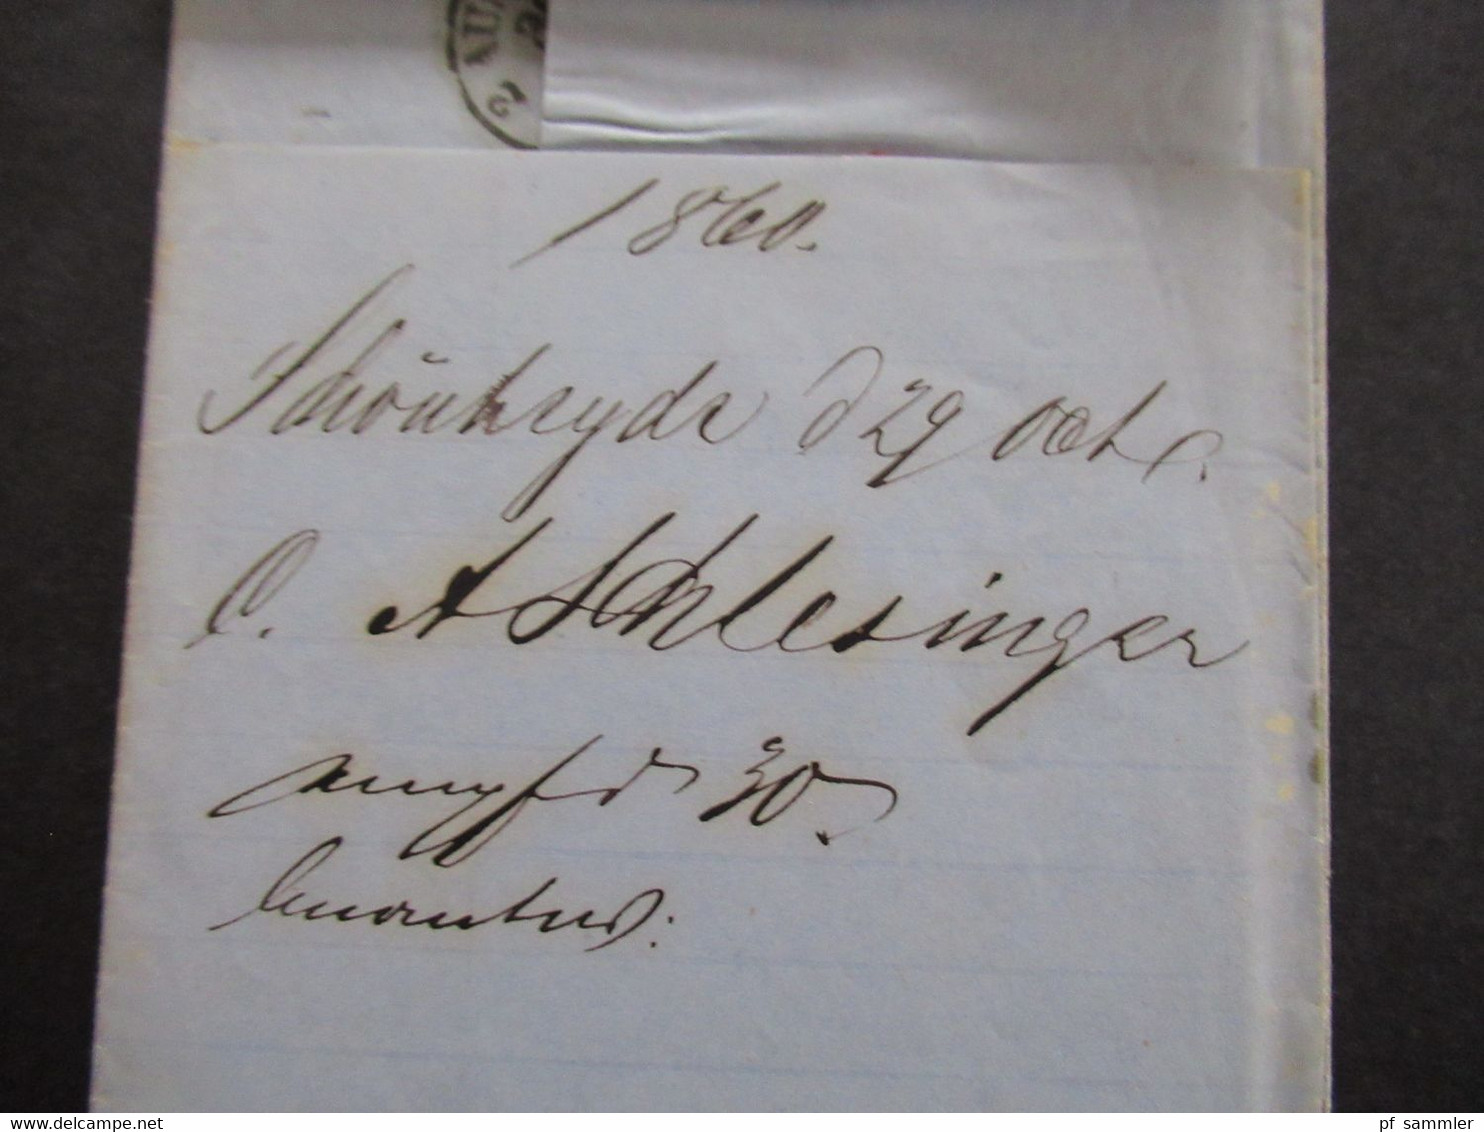 AU
1860.
Schönheyde d 29 Oct
A Schlesinger
empf d 30.
beantw:
www.delcampe.net
pf_sammler